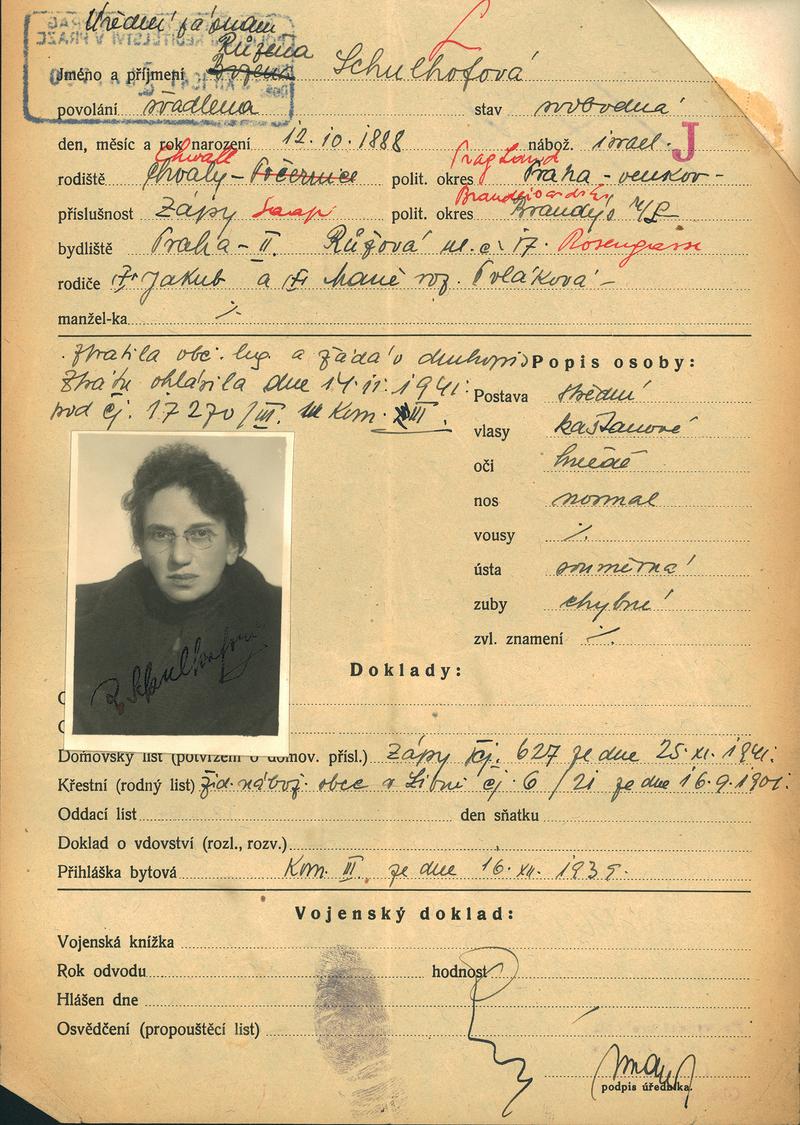 Úřední záznam
Růžena
Jméno a příjmení Schulhofová
povolání švadlena stav svobodná
den, měsíc a rok narození 12.10.1888 nábož. israel. J
Chwall Prag Land
rodiště Chvaly - Počernice polit. okres Praha - venkov -
příslušnost Zápy Saap polit. okres Brandýs n/L
bydliště Praha - II. Růžová ul. č. 17. Rosengasse
rodiče Jakub a Marie roz. Poláková -
manžel-ka ·/.
Ztratila obč. leg. a žádá o duplikopis Popis osoby:
Ztrátu ohlásila dne 14.11.1941. Postava střední
pod čj. 17270/III. Kom. III.
vlasy kaštanové
oči hnědé
nos normal
vousy ·/.
ústa souměrná
zuby chybné
zvl. znamení ·/.
R. Schulhofová
Doklady:
Domovský list (potvrzení o domov. přísl.) Zápy čj. 627 ze dne 25.XI.1941.
Křestní (rodný list) žid. nábož. obec v Libni čj. 6/21 ze dne 16.9.1901.
Oddací list den sňatku
Doklad o vdovství (rozl., rozv.)
Přihláška bytová Kom. III. ze dne 16.XII.1939.
Vojenský doklad:
Vojenská knížka
Rok odvodu hodnost
Hlášen dne
Osvědčení (propouštěcí list)
podpis úředníka.